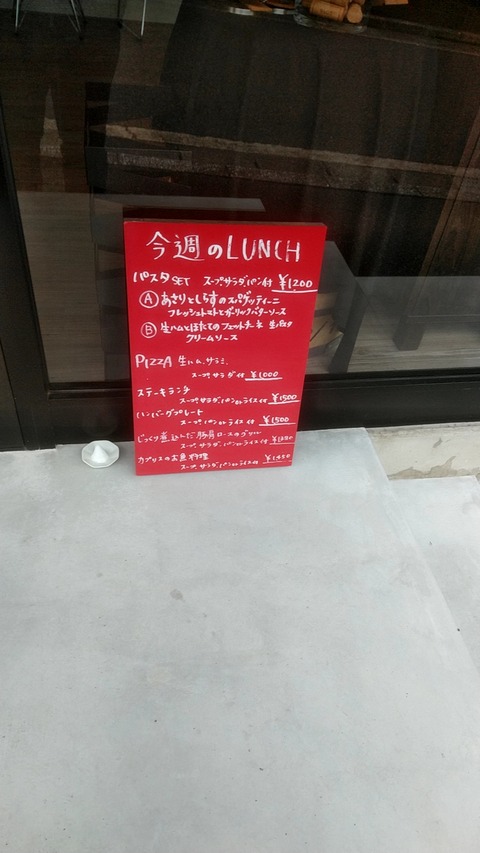 今週のLUNCH
パスタSET スープ.サラダ.パン付 ¥1200
Ⓐ あさりとしらすのスパゲッティーニ
フレッシュトマトとガーリックバターソース
Ⓑ 生ハムとほたてのフェットチーネ 生パスタ
クリームソース
PIZZA 生ハム.サラミ.
スープ.サラダ付 ¥1000
ステーキランチ
スープ.サラダ.パンorライス付 ¥1500
ハンバーグプレート
スープ.パンorライス付 ¥1500
じっくり煮込んだ豚肩ロースのグリル
スープ.サラダ.パンorライス付
カプリスのお魚料理
スープ.サラダ.パンorライス付